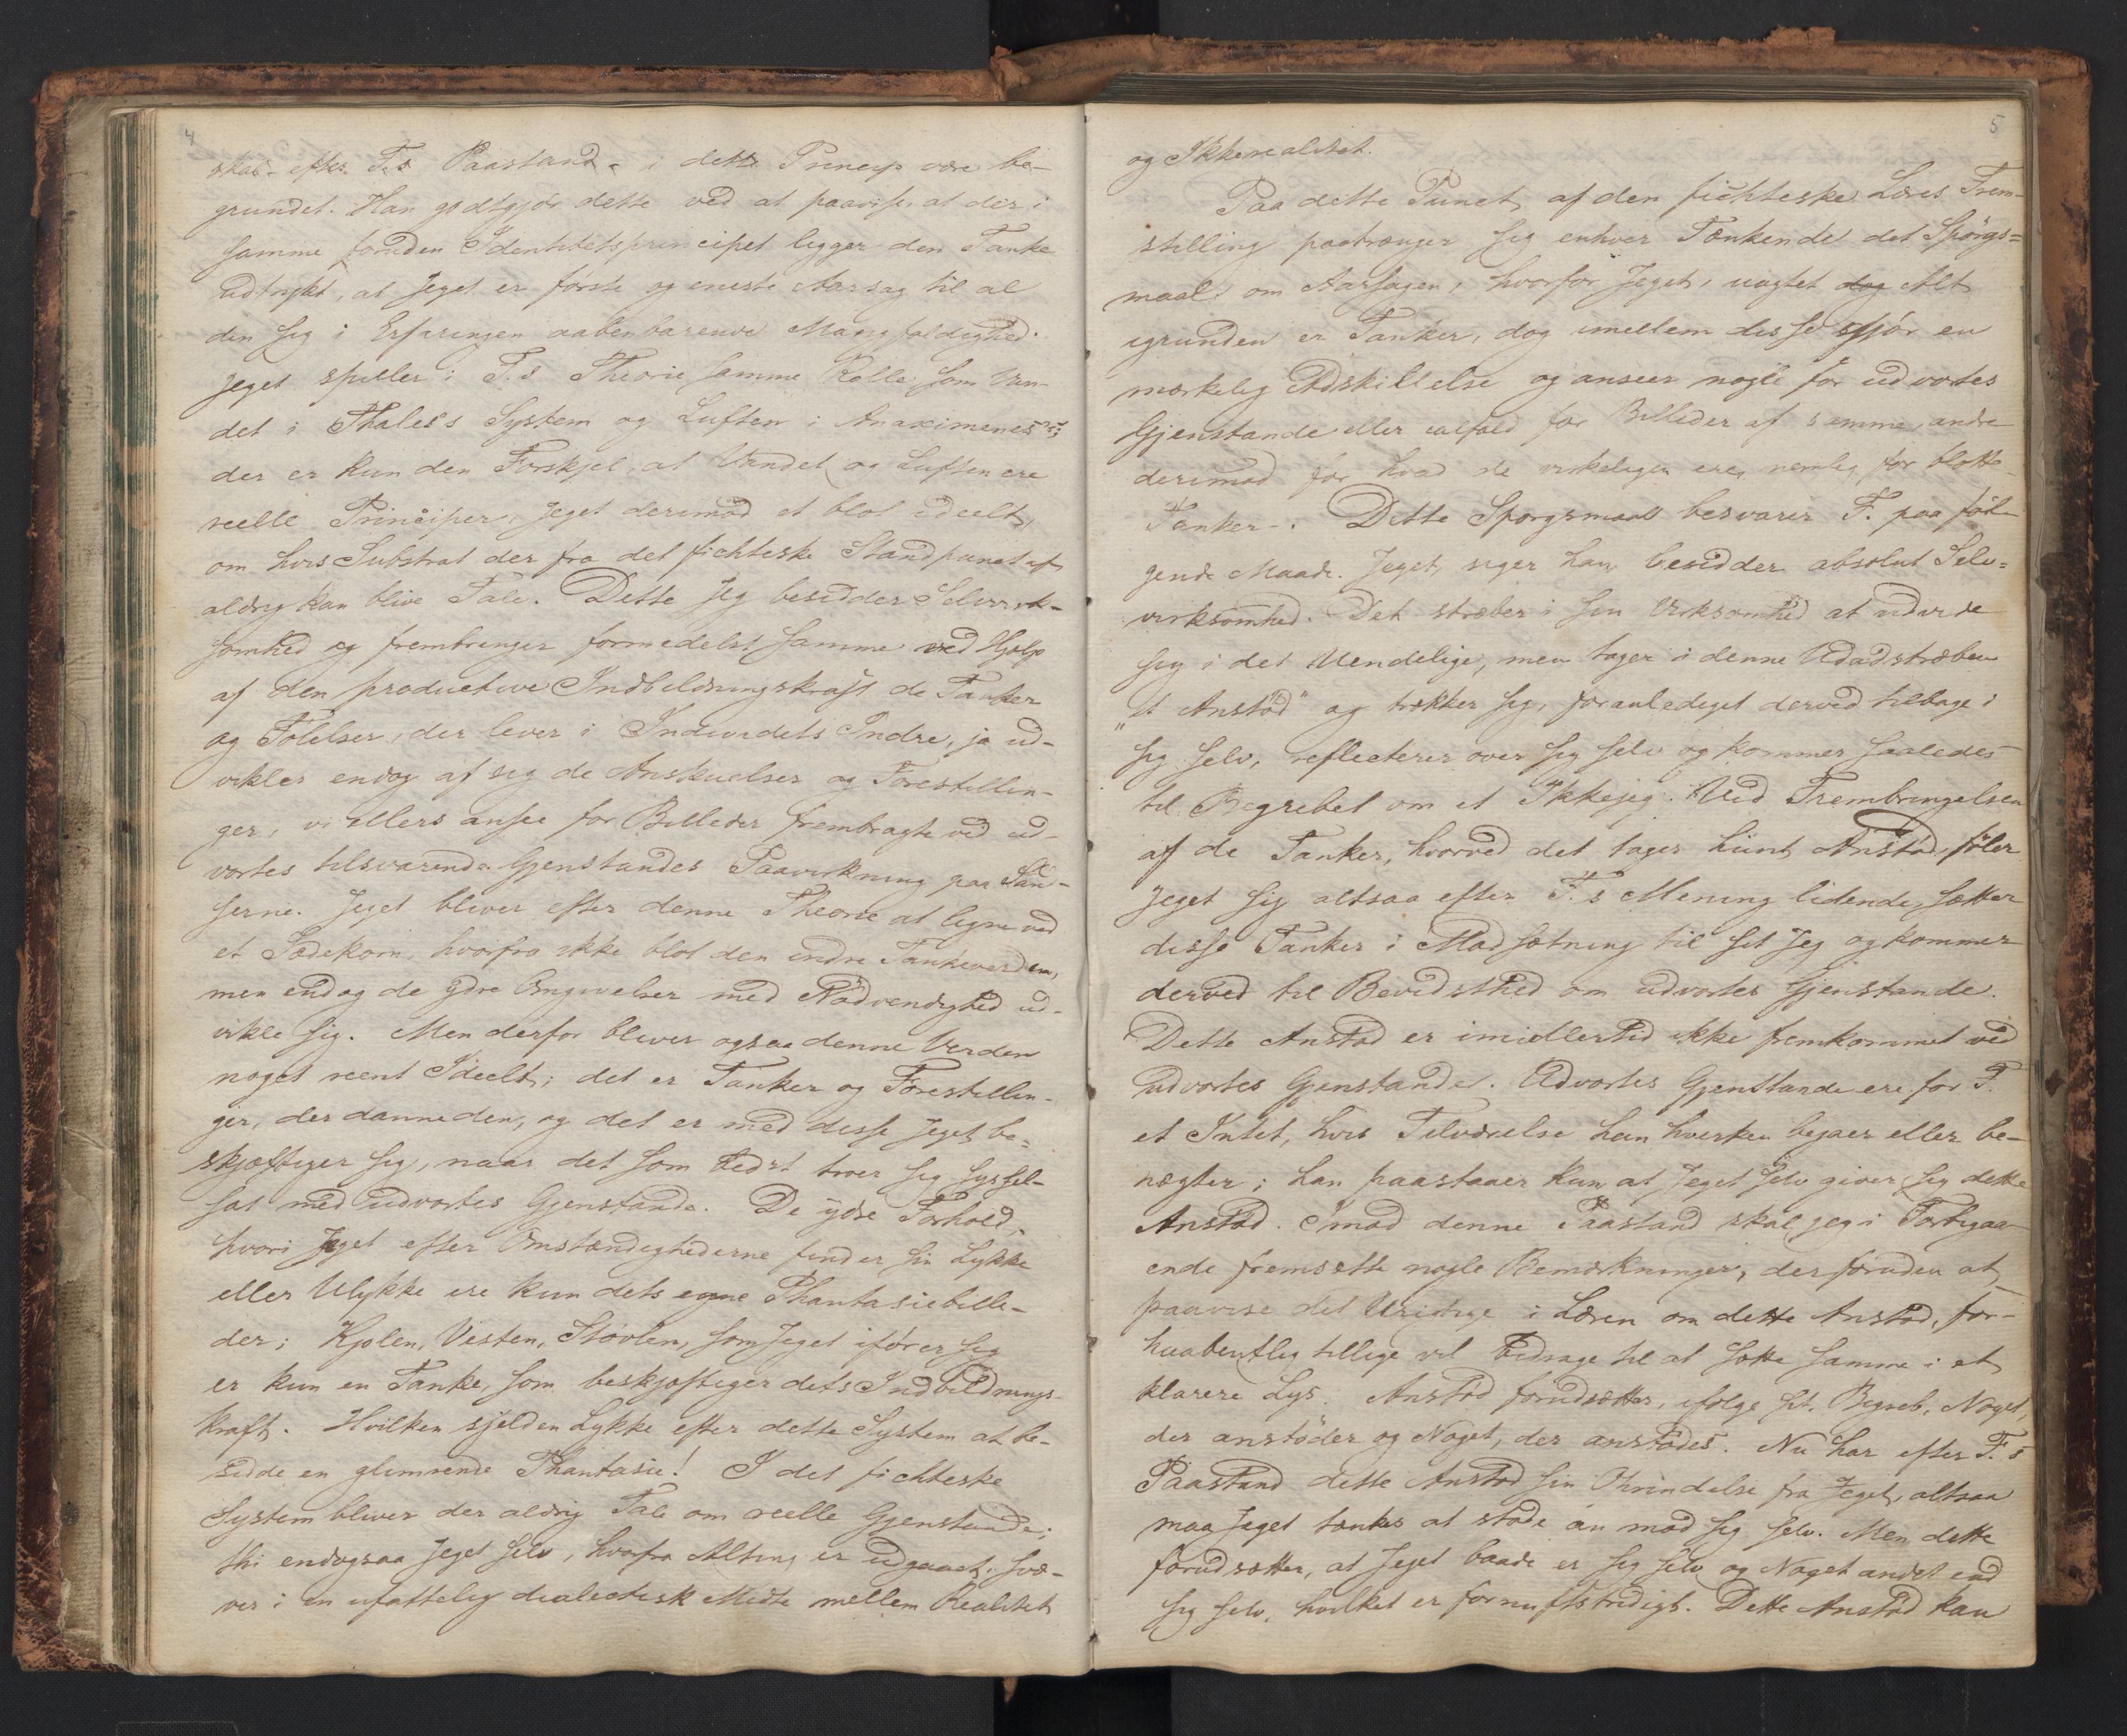 4
skal - efter F.s Paastand - i dette Princip være be-
grundet. Han godtgjör dette ved at paavise, at der i
samme foruden Identitetsprincipet ligger den Tanke
udtrykt, at Jeget er förste og eneste Aarsag til al
den sig i Erfaringen aabenbarende Mangfoldighed.
Jeget spiller i F.s Theorie samme Rolle som Van-
det i Thales's System og Luften i Anaximenes's;
der er kun den Forskjel, at Vandet og Luften ere
reelle Principer, Jeget derimod et blot ideelt,
om hvis Substrat der fra det fichteske Standpunct af
aldrig kan blive Tale. Dette Jeg besidder Selvvirk-
somhed og frembringer formedelst samme ved Hjelp
af den productive Indbildningskraft de Tanker
og Fölelser, der lever i Individets Indre, ja ud-
vikler endog af sig de Anskuelser og Forestillin-
ger, vi ellers ansee for Billeder frembragte ved ud-
vortes tilsvarende Gjenstandes Paavirkning paa San-
serne. Jeget bliver efter denne Theorie at ligne ved
et Sædekorn, hvorfra ikke blot den indre Tankeverden,
men endog de ydre Omgivelser med Nödvendighed ud-
vikle sig. Men derfor bliver ogsaa denne Verden
noget reent Ideelt; det er Tanker og Forestillin-
ger, der danne den, og det er med disse Jeget be-
skjæftiger sig, naar det som bedst troer sig syssel-
sat med udvortes Gjenstande. De ydre Forhold,
hvori Jeget efter Omstændighederne finder sin Lykke
eller Ulykke ere kun dets egne Phantasiebille-
der; Kjolen, Vesten, Stövlen, som Jeget iförer sig
er kun en Tanke, som beskjæftiger dets Indbildnings-
kraft. Hvilken sjelden Lykke efter dette System at be-
sidde en glimrende Phantasie! I det fichteske
System bliver der aldrig Tale om reelle Gjenstande;
thi endogsaa Jeget selv, hvorfra Alting er udgaaet, svæ-
ver i en ufattelig dialectisk Midte mellem Realitet
5
og Ikkerealitet.
Paa dette Punct af den fichteske Læres Frem-
stilling paatrænger sig enhver Tænkende det Spörgs-
maal om Aarsagen, hvorfor Jeget, uagtet dog Alt
igrunden er Tanker, dog imellem disse gjör en
mærkelig Adskillelse og anseer nogle for udvortes
Gjenstande eller ialfald for Billeder af samme, andre
derimod for hvad de virkeligen ere, nemlig for blotte
Tanker -. Dette Spörgsmaal besvarer F. paa föl-
gende Maade. Jeget, siger han, besidder absolut Selv-
virksomhed. Det stræber i sin Virksomhed at udvide
sig i det Uendelige, men tager i denne Udadstræben
„et Anstöd" og trækker sig, foranlediget derved tilbage i
sig selv, reflecterer over sig selv og kommer saaledes
til Begrebet om et Ikkejeg. Ved Frembringelsen
af de Tanker, hvorved det tager hiint Anstöd, föler
Jeget sig altsaa efter F.s Mening lidende, sætter
disse Tanker i Modsætning til sit Jeg og kommer
derved til Bevidsthed om udvortes Gjenstande.
Dette Anstöd er imidlertid ikke fremkommet ved
udvortes Gjenstande. Udvortes Gjenstande ere for F.
et Intet, hvis Tilværelse han hverken bejaer eller be-
nægter; han paastaaer kun, at Jeget selv giver sig dette
Anstöd. Imod denne Paastand skal jeg i Forbigaa-
ende fremsætte nogle Bemærkninger, der foruden at
paavise det Urigtige i Læren om dette Anstöd, for-
haabentlig tillige vil bidrage til at sætte samme i et
klarere Lys. Anstöd forudsætter, ifölge sit Begreb, Noget,
der anstöder og Noget, der anstödes. Nu har efter F.s
Paastand dette Anstöd sin Oprindelse fra Jeget, altsaa
maa Jeget tænkes at stöde an mod sig selv. Men dette
forudsætter, at Jeget baade er sig selv og Noget andet end
sig selv, hvilket er fornuftstridigt. Dette Anstöd kan